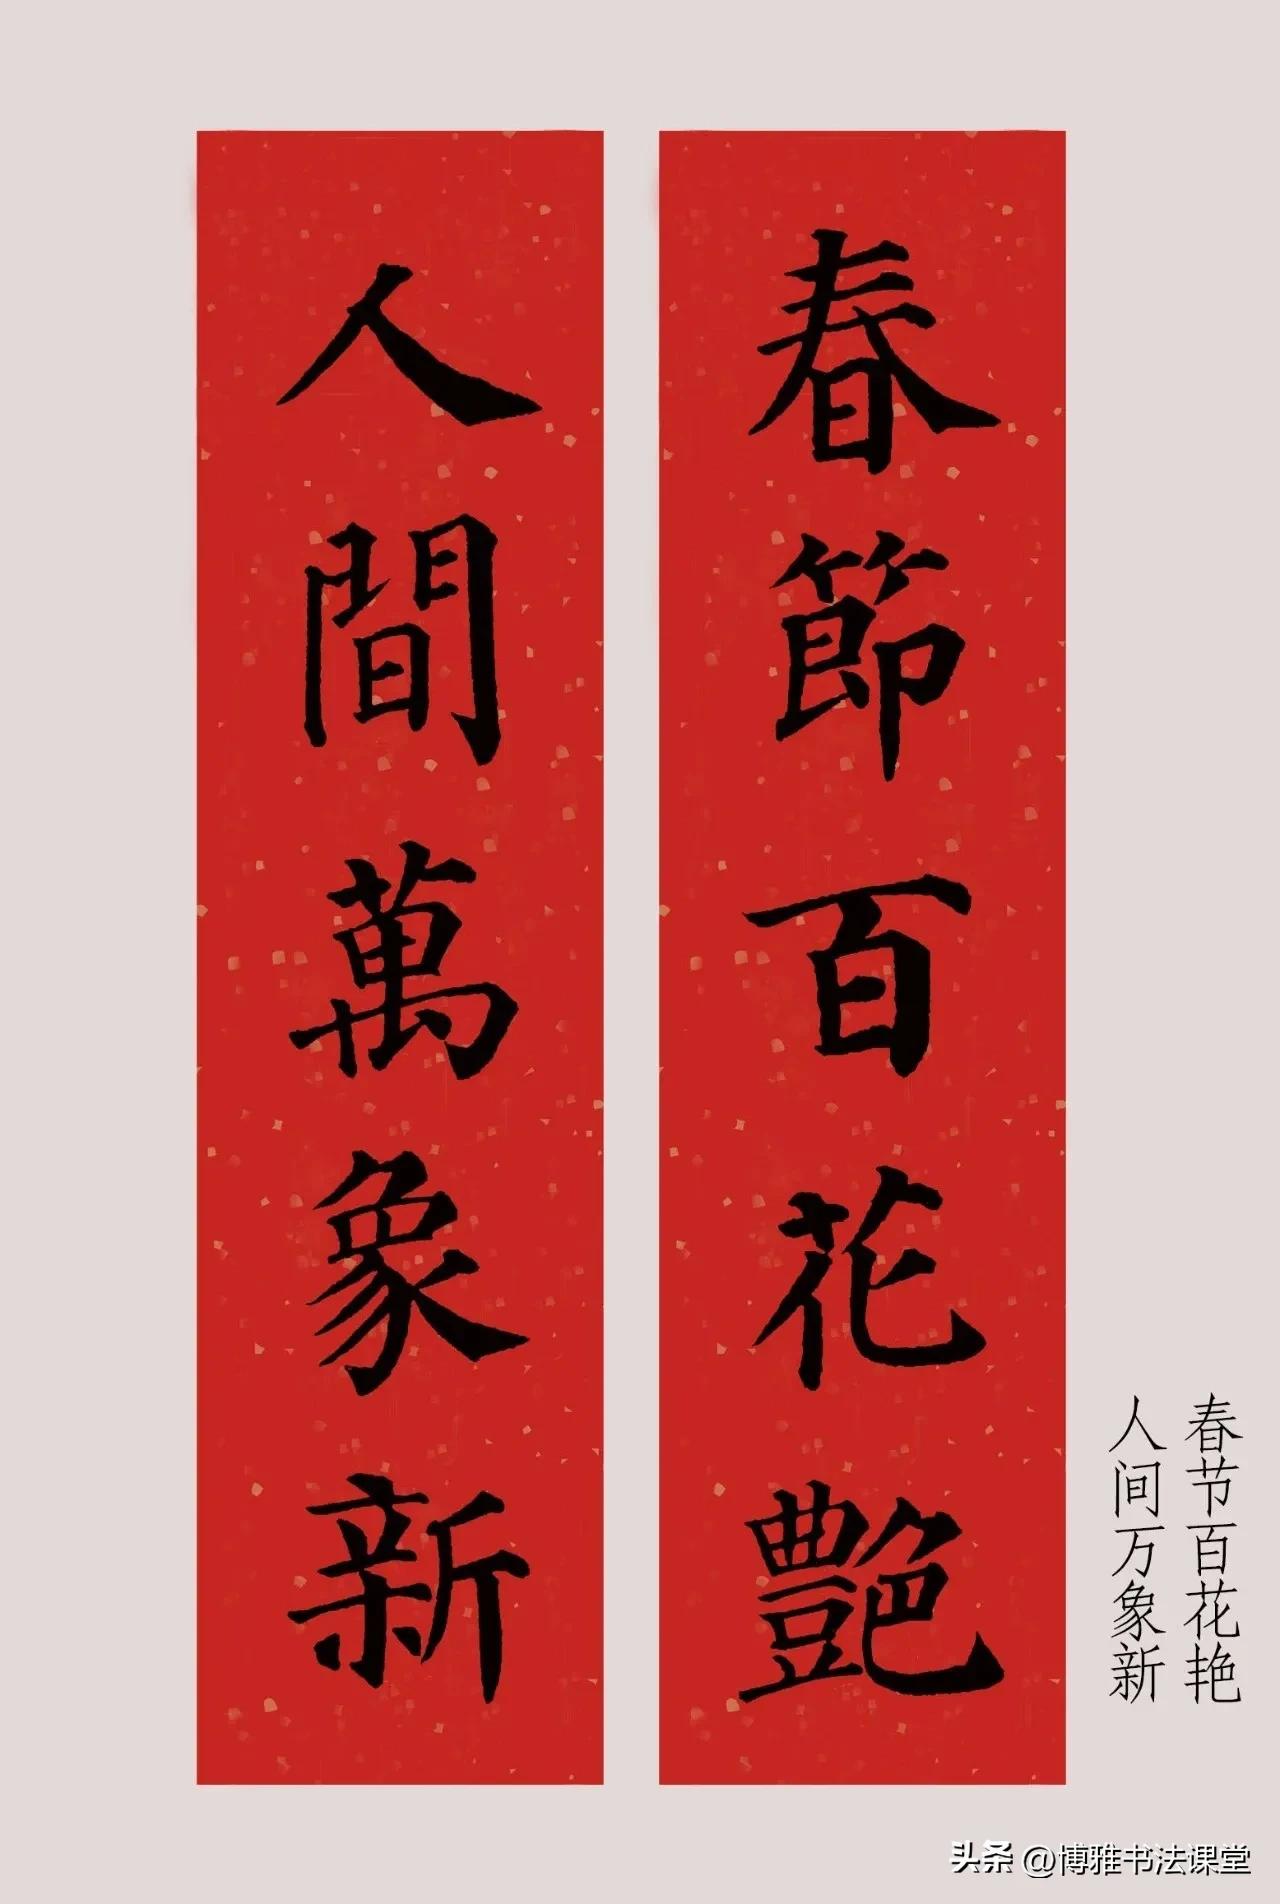 春節百花艷
人間萬象新
春节百花艳
人间万象新
头条 @博雅书法课堂